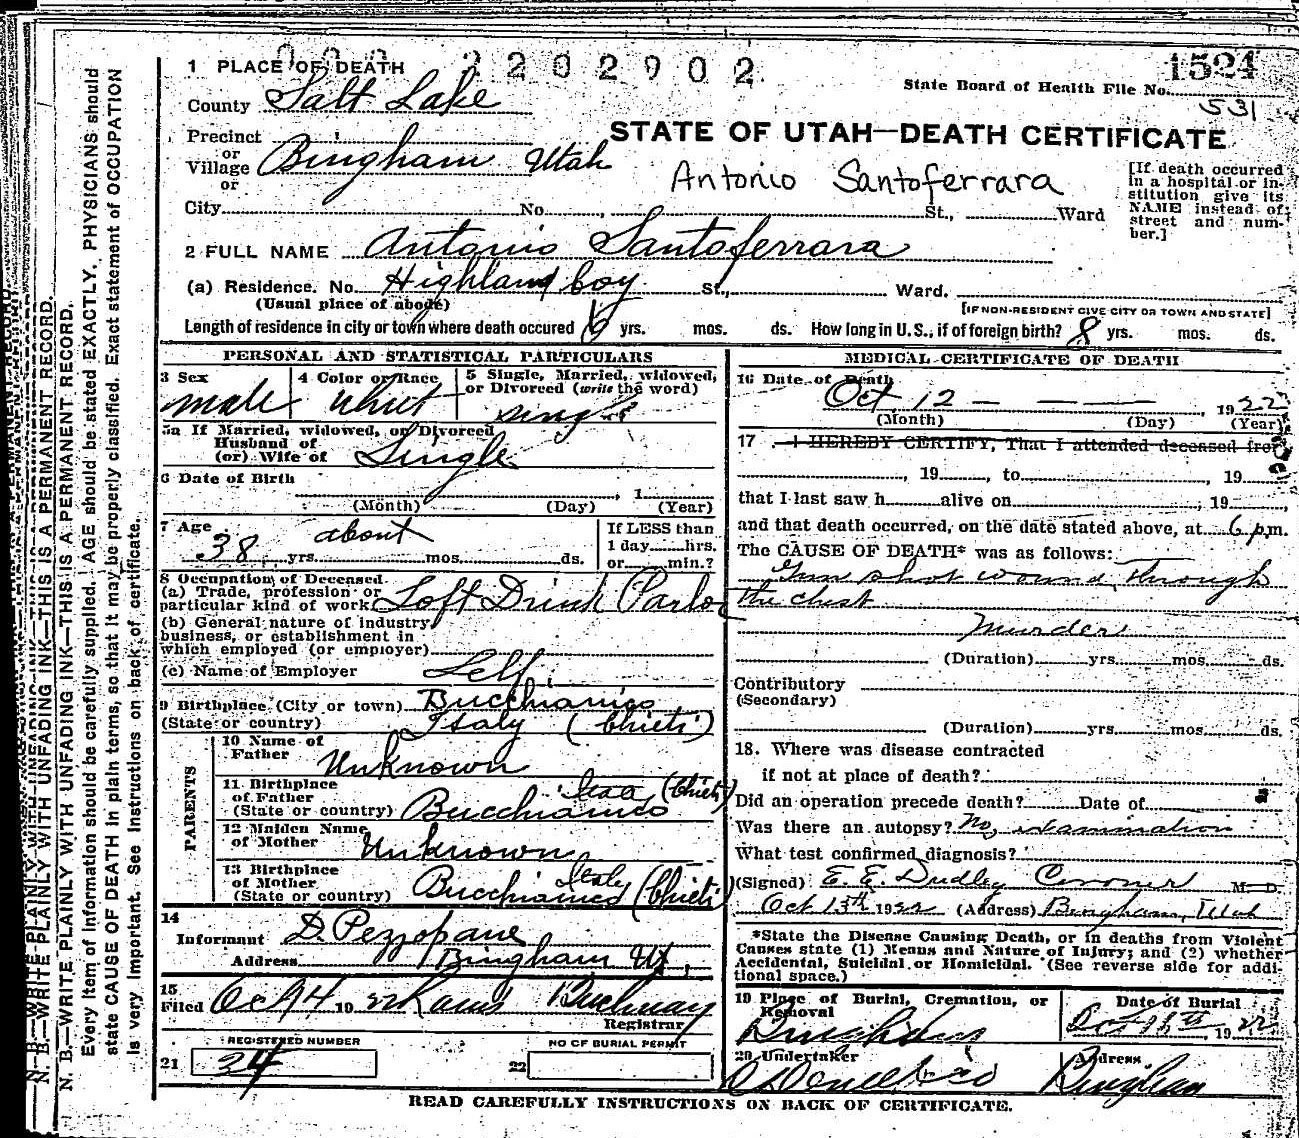 2202902
1524
1 PLACE OF DEATH
State Board of Health File No.
531
County Salt Lake
Precinct
or
Village Bingham Utah
or
STATE OF UTAH—DEATH CERTIFICATE
Antonio Santoferrara
[If death occurred
in a hospital or in-
stitution give its
NAME instead of
street and num-
ber.]
City No. , St., Ward
2 FULL NAME Antonio Santoferrara
(a) Residence. No. Highland boy St., Ward.
(Usual place of abode) [IF NON-RESIDENT GIVE CITY OR TOWN AND STATE]
Length of residence in city or town where death occured 6 yrs. mos. ds. How long in U. S., if of foreign birth? 8 yrs. mos. ds.
PERSONAL AND STATISTICAL PARTICULARS
3 Sex
male
4 Color or Race
whit
5 Single, Married, widowed,
or Divorced (write the word)
single
5a If Married, widowed, or Divorced
Husband of
(or) Wife of Single
6 Date of Birth
, 1
(Month) (Day) (Year)
7 Age about
38 yrs. mos. ds.
If LESS than
1 day hrs.
or min.?
8 Occupation of Deceased
(a) Trade, profession or
particular kind of work Soft Drink Parlor
(b) General nature of industry,
business, or establishment in
which employed (or employer)
(c) Name of Employer Self
9 Birthplace (City or town) Bucchianico
(State or country) Italy (Chieti)
PARENTS
10 Name of
Father Unknown
11 Birthplace
of Father (Chieti)
(State or country) Bucchianico
12 Maiden Name
of Mother Unknown
13 Birthplace
of Mother Italy
(State or country) Bucchianico (Chieti)
14
Informant D. Pezzopane
Address Bingham Ut,
15
Filed Oct 14 19 22 Buchway
Registrar
REGISTERED NUMBER
21 34
NO OF BURIAL PERMIT
22
MEDICAL CERTIFICATE OF DEATH
16 Date of Death
Oct 12 — — — , 1922
(Month) (Day) (Year)
17 I HEREBY CERTIFY, That I attended deceased from
, 19 , to , 19
that I last saw h alive on ; 19 ,
and that death occurred, on the date stated above, at 6 p.m.
The CAUSE OF DEATH* was as follows:
Gun shot wound, Through
the chest
Murder
(Duration) yrs. mos. ds.
Contributory
(Secondary)
(Duration) yrs. mos. ds.
18. Where was disease contracted
if not at place of death?
Did an operation precede death? Date of
Was there an autopsy? No, examination
What test confirmed diagnosis?
(Signed) E. E. Dudley Coroner M. D.
Oct 13th 1922 (Address) Bingham, Utah
*State the Disease Causing Death, or in deaths from Violent
Causes state (1) Means and Nature of Injury; and (2) whether
Accidental, Suicidal or Homicidal. (See reverse side for addi-
tional space.)
19 Place of Burial, Cremation, or
Removal
Date of Burial
Oct , 1922
20 Undertaker
Address
Bingham
READ CAREFULLY INSTRUCTIONS ON BACK OF CERTIFICATE.
N. B.—WRITE PLAINLY WITH UNFADING INK—THIS IS A PERMANENT RECORD.
N. B.—WRITE PLAINLY WITH UNFADING INK—THIS IS A PERMANENT RECORD.
Every item of information should be carefully supplied. AGE should be stated EXACTLY. PHYSICIANS should
state CAUSE OF DEATH in plain terms, so that it may be properly classified. Exact statement of OCCUPATION
is very important. See instructions on back of certificate.